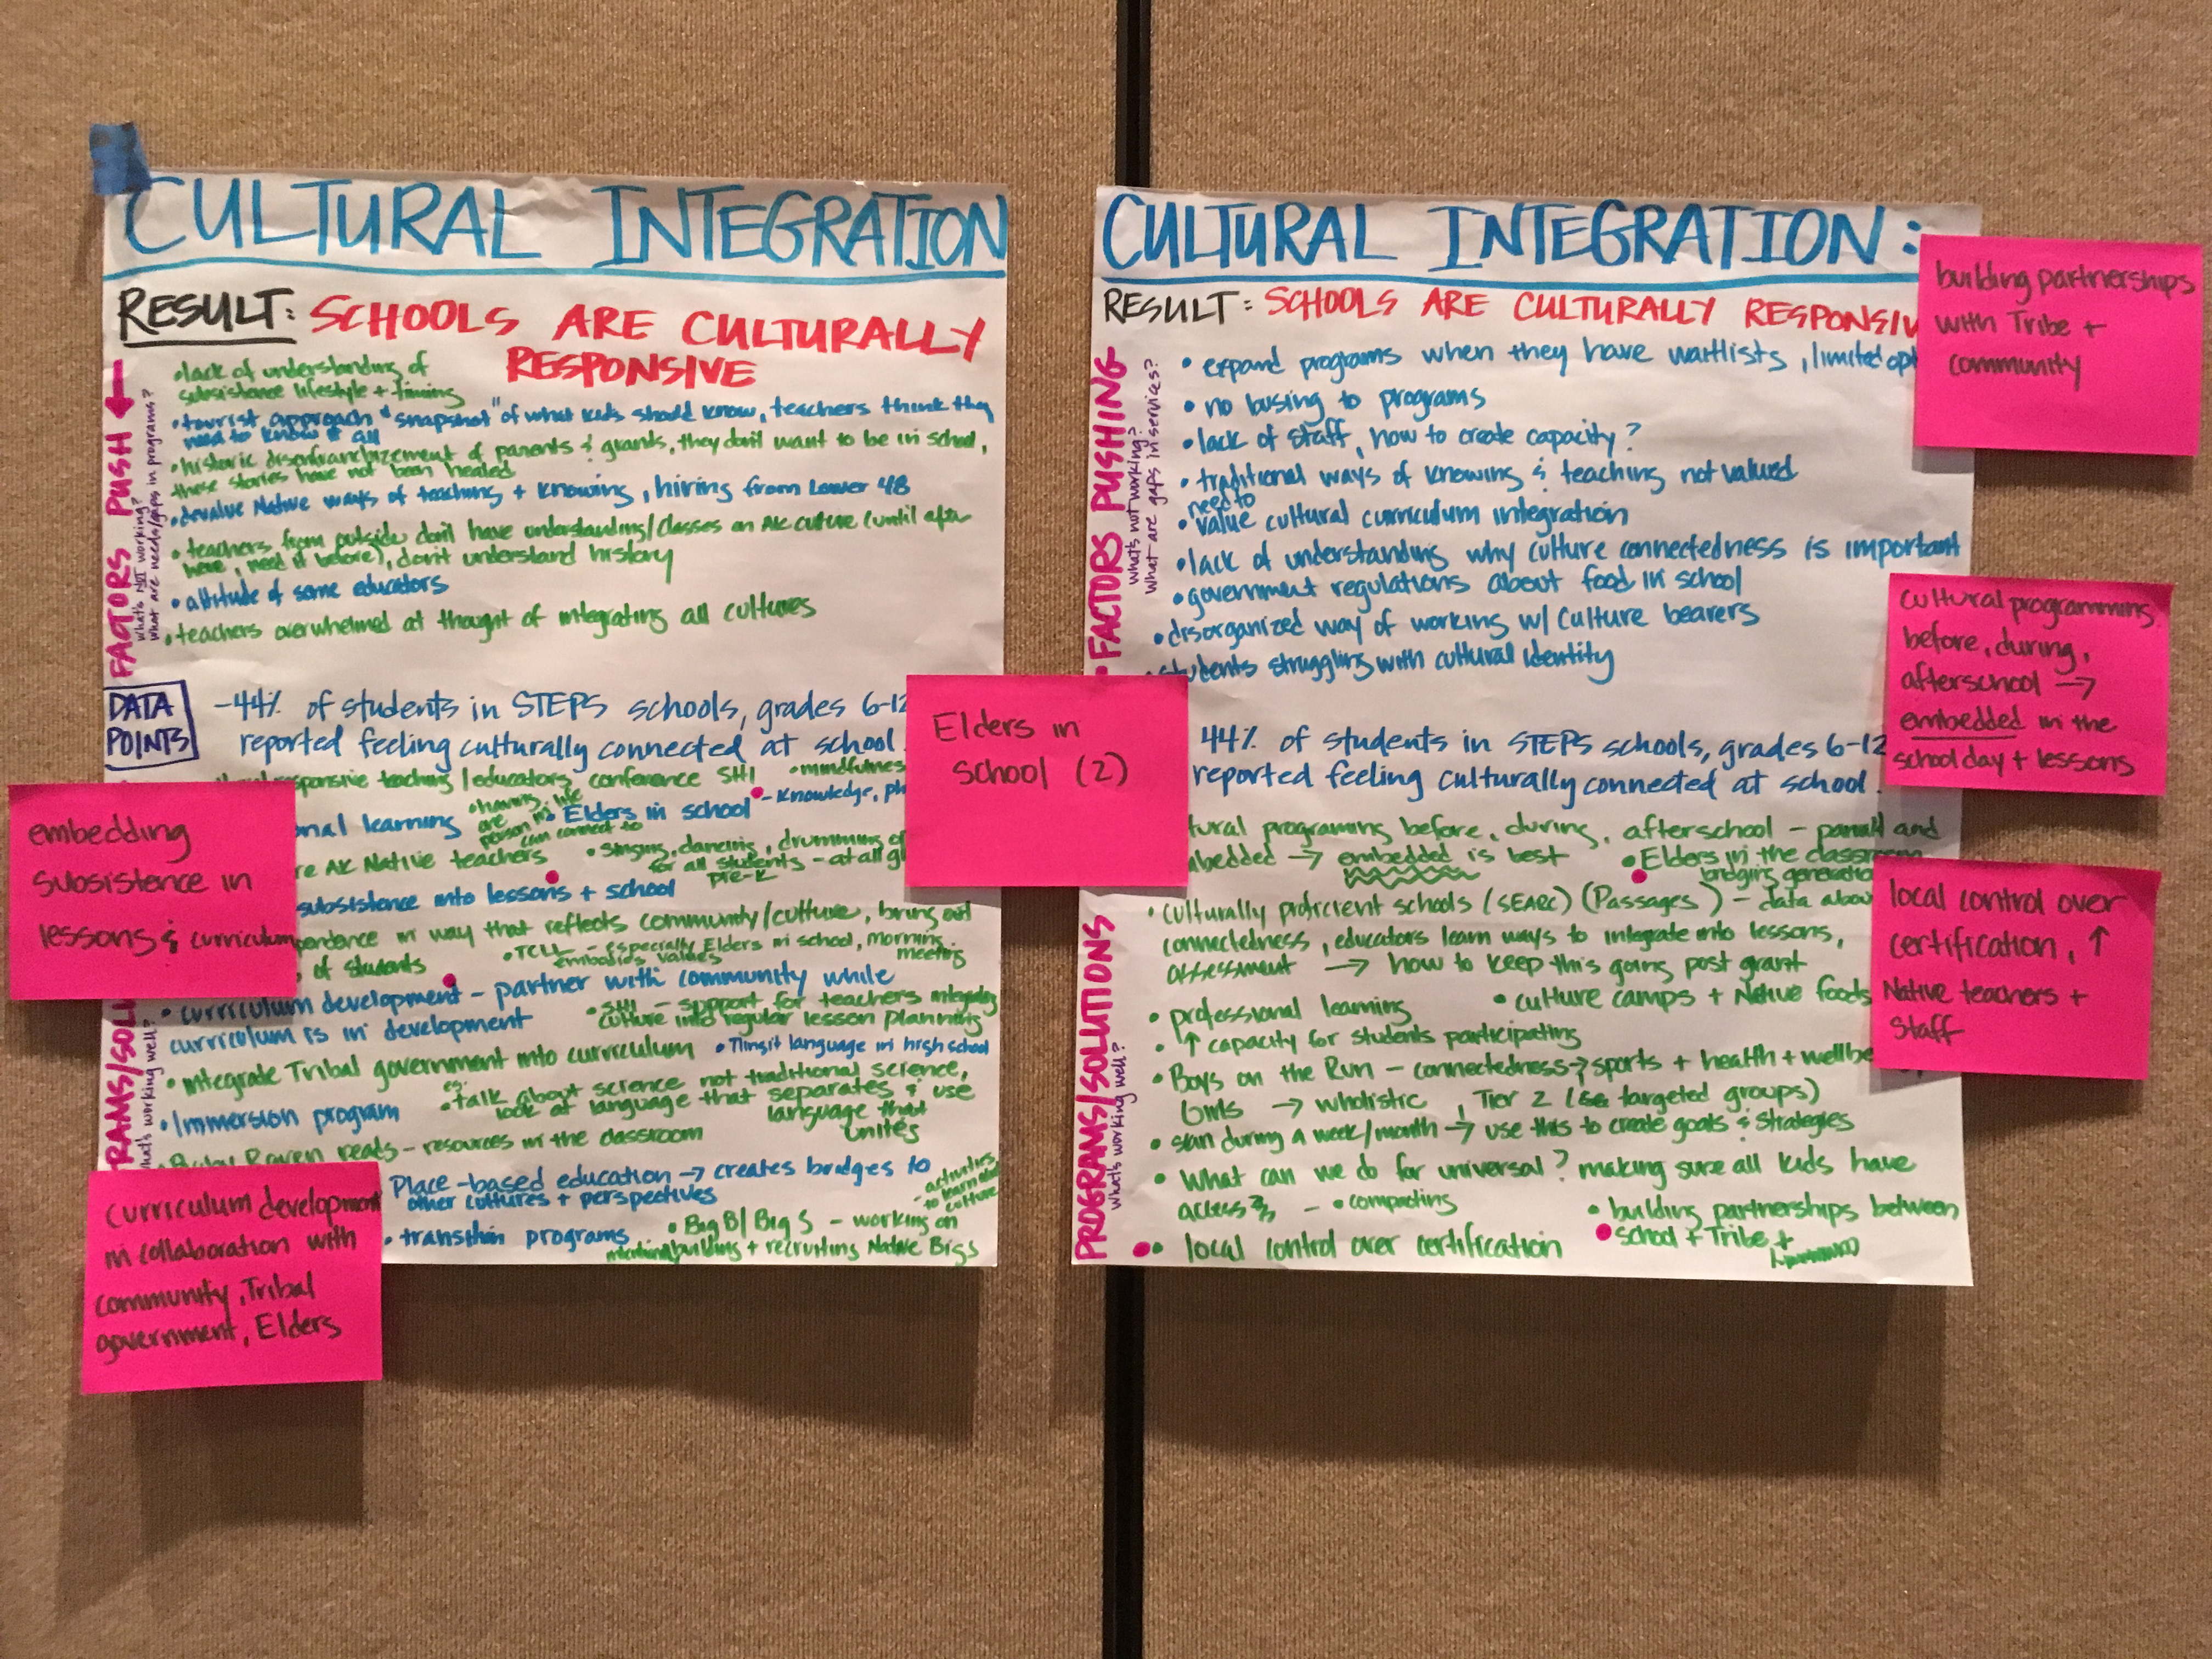 CULTURAL INTEGRATION
RESULT: SCHOOLS ARE CULTURALLY
RESPONSIVE
FACTORS PUSH
what's NOT working?
what are needs/gaps in programs?
• lack of understanding of
subsistence lifestyle + timing
• tourist approach "snapshot" of what kids should know, teachers think they
need to know it all
• historic disenfranchizement of parents & grants, they don't want to be in school,
these stories have not been healed
• devalue Native ways of teaching + knowing, hiring from Lower 48
• teachers from outside don't have understanding/classes on AK culture (until after
here, need it before), don't understand history
• attitude of some educators
• teachers overwhelmed at thought of integrating all cultures
DATA
POINTS
- 44% of students in STEPS schools, grades 6-12
reported feeling culturally connected at school.
responsive teaching/educators conference SHI
• mindfulness
nal learning
• having
are
person in life
can connect to
• Elders in school - knowledge, ph
re AK Native teachers
• singing, dancing, drumming of
for all students - at all g
pre-K
subsistence into lessons + school
pendence in way that reflects community/culture, bring out
of students
• TCLL - especially Elders in school, morning
embodies values
meeting
• curriculum development - partner with community while
curriculum is in development
• SHI - support for teachers integrating
culture into regular lesson planning
• integrate Tribal government into curriculum
• Tlingit language in high school
eg.
• talk about science not traditional science,
look at language that separates & use
language that
unites
• Immersion program
• Baby Raven reads - resources in the classroom
Place-based education → creates bridges to
other cultures + perspectives
- activities
to learn about
culture
• transition programs
• Big B/Big S - working on
building + recruiting Native Bigs
RAMS/SOLU
what's working well?
embedding
subsistence in
lessons & curriculum
curriculum development
in collaboration with
community, Tribal
government, Elders
Elders in
school (2)
CULTURAL INTEGRATION:
RESULT: SCHOOLS ARE CULTURALLY RESPONSIV
• FACTORS PUSHING
what's not working?
what are gaps in services?
• expand programs when they have waitlists, limited opt
• no busing to programs
• lack of staff, how to create capacity?
• traditional ways of knowing & teaching not valued
need to
• value cultural curriculum integration
• lack of understanding why culture connectedness is important
• government regulations about food in school
• disorganized way of working w/ culture bearers
• students struggling with cultural identity
44% of students in STEPS schools, grades 6-12
reported feeling culturally connected at school.
tural programing before, during, afterschool - and
mbedded → embedded is best
• Elders in the classroom
bridging generatio
• culturally proficient schools (SEARC) (Passages) - data abou
connectedness, educators learn ways to integrate into lessons,
assessment → how to keep this going post grant
• professional learning
• culture camps + Native foods
• ↑ capacity for students participating
• Boys on the Run - connectedness → sports + health + wellbe
Girls → wholistic, Tier 2 ( targeted groups)
• during a week/month → use this to create goals & strategies
• What can we do for universal? making sure all kids have
access - • compacting
• building partnerships between
school + Tribe +
• local control over certification
PROGRAMS/SOLUTIONS
what's working well?
building partnerships
with Tribe +
community
cultural programming
before, during,
afterschool →
embedded in the
school day + lessons
local control over
certification, ↑
Native teachers +
Staff